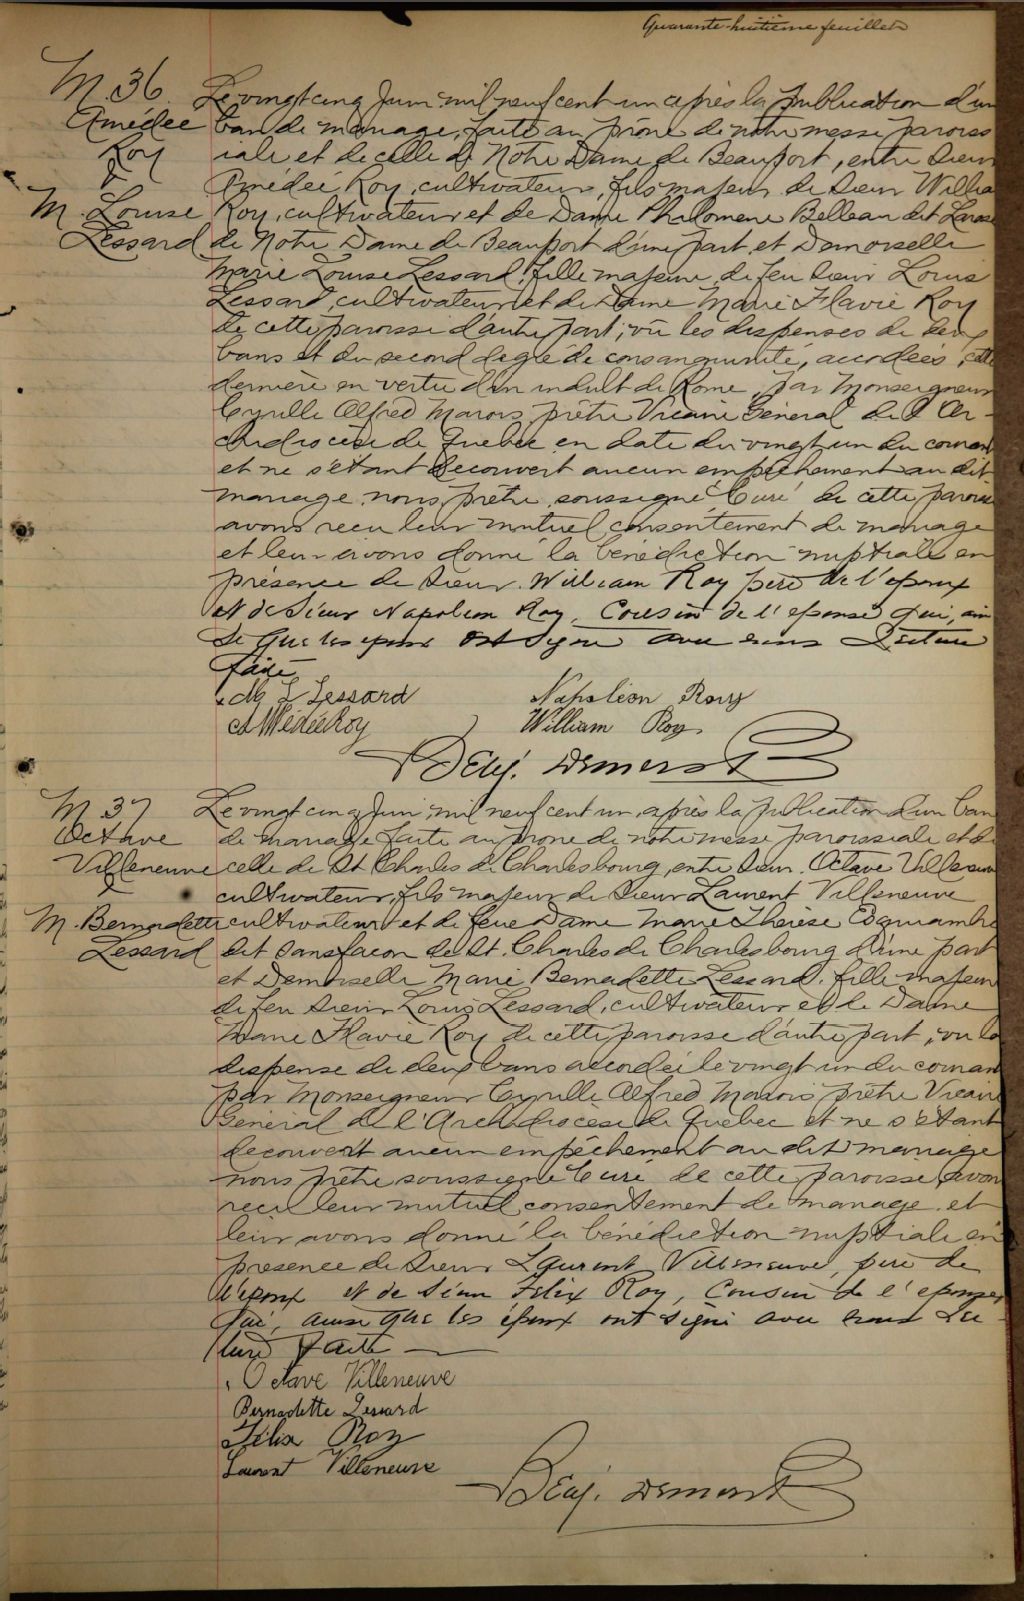 Quarante-huitième feuillet
M. 36.
Amédée
Roy
&
M. Louise
Lessard
Le vingt cinq Juin mil neuf cent un après la publication d'un
ban de mariage, faite au prône de notre messe parois
siale et de celle de Notre Dame de Beauport, entre Sieur
Amédée Roy, cultivateur, fils majeur de Sieur Willia
Roy, cultivateur et de Dame Philomene Belleau dit Larose
de Notre Dame de Beauport d'une part et Demoiselle
Marie Louise Lessard, fille majeure de feu Sieur Louis
Lessard, cultivateur et de Dame Marie Flavie Roy
de cette paroisse d'autre part; vû les dispenses de deux
bans et du second degré de consanguinité, accordées, cette
dernière en vertu d'un indult de Rome, par Monseigneur
Cyrille Alfred Marois, prêtre Vicaire Général de l'Ar-
chidiocèse de Quebec en date du vingt un du courant
et ne s'étant decouvert aucun empêchement au dit
mariage nous prêtre soussigné Curé de cette paroisse
avons reçu leur mutuel consentement de mariage
et leur avons donné la bénédiction nuptiale en
présence de Sieur William Roy père de l'epoux
et de Sieur Napoléon Roy, Cousin de l'epouse qui, ain
si que les epoux ont signé avec nous Lecture
faite
M L Lessard
Napoléon Roy
Amédée Roy
William Roy
Benj. Demers Ptr
M. 37
Octave
Villeneuve
&
M. Bernadette
Lessard
Le vingt cinq Juin, mil neuf cent un, après la publication d'un ban
de mariage faite au prone de notre messe paroissiale et de
celle de St Charles de Charlesbourg, entre Sieur Octave Villeneuve
cultivateur, fils majeur de Sieur Laurent Villeneuve
cultivateur et de feue Dame Marie Thérèse
dit Sansfacon de St. Charles de Charlesbourg d'une part
et Demoiselle Marie Bernadette Lessard, fille majeure
de feu Sieur Louis Lessard, cultivateur et de Dame
Marie Flavie Roy de cette paroisse d'autre part; vu la
dispense de deux bans accordée le vingt un du courant
par Monseigneur Cyrille Alfred Marois prêtre Vicaire
Général de l'Archidiocèse de Quebec et ne s'étant
decouvert aucun empêchement au dit mariage
nous prêtre soussigné Curé de cette paroisse avons
reçu leur mutuel consentement de mariage et
leur avons donné la bénédiction nuptiale en
presence de Sieur Laurent Villeneuve, père de
l'epoux et de Sieur Felix Roy, Cousin de l'epouse
qui, ainsi que les époux ont signé avec nous Lec-
ture faite
Octave Villeneuve
Bernadette Lessard
Félix Roy
Laurent Villeneuve
Benj. Demers Ptr